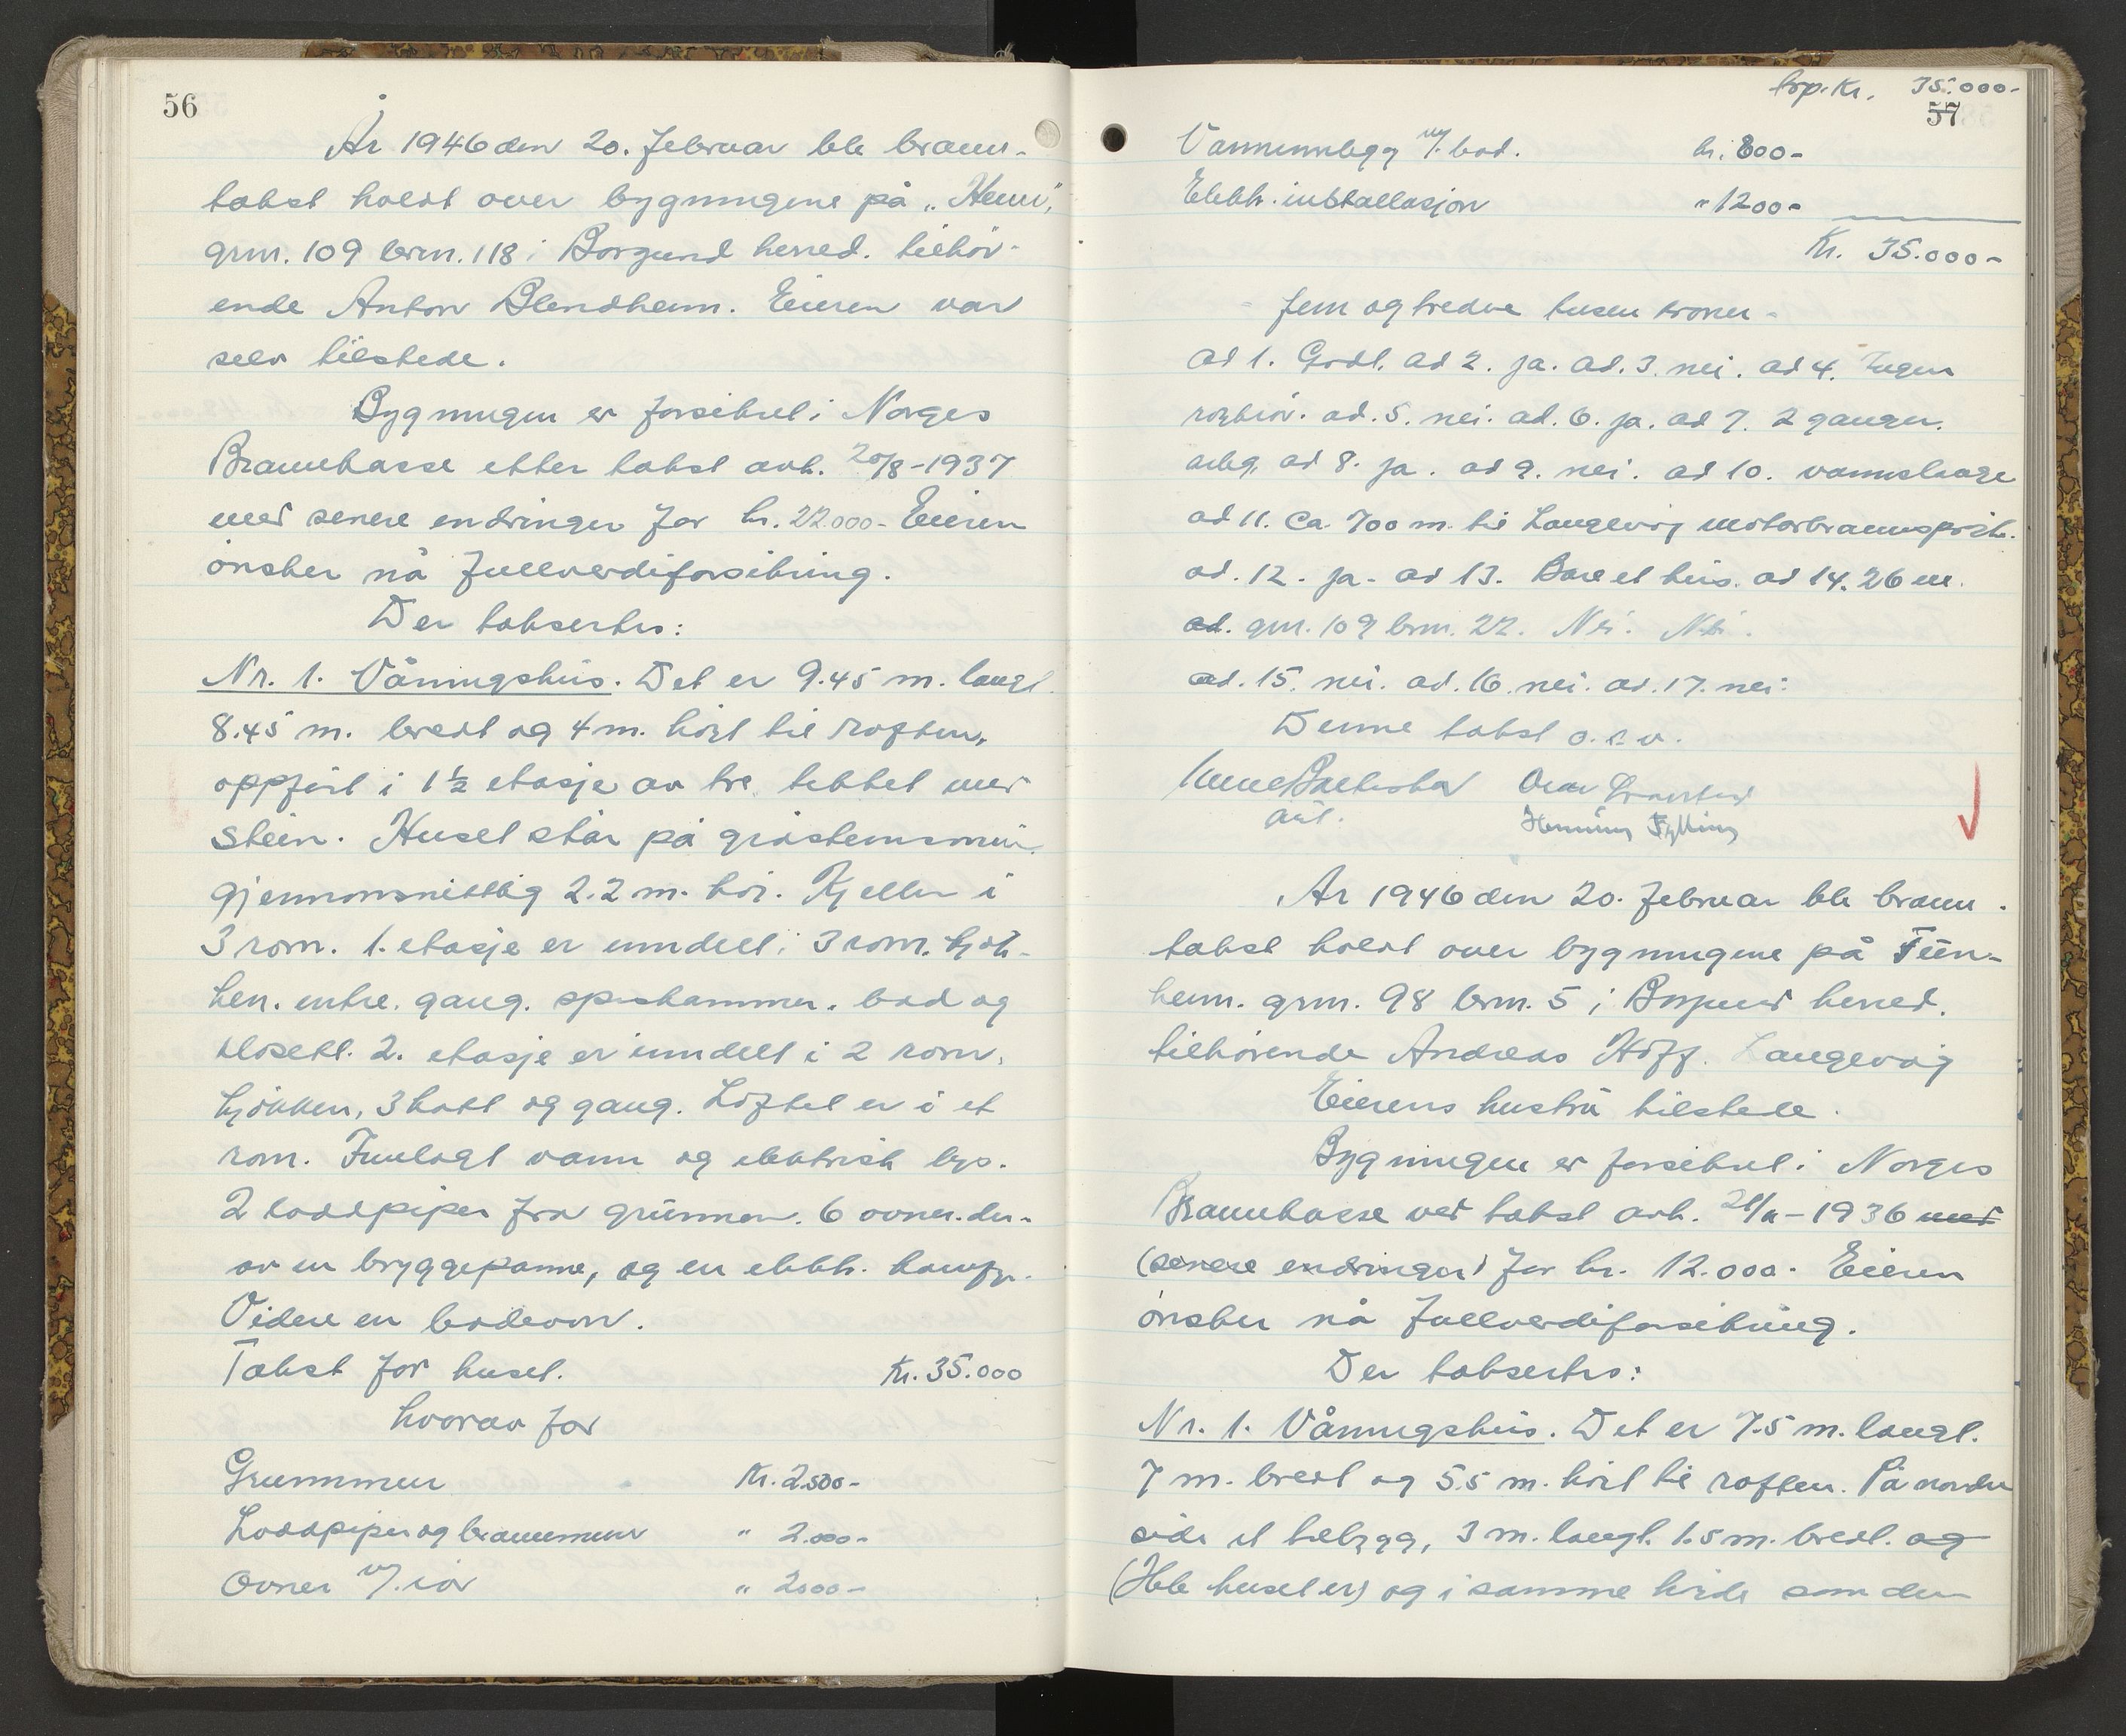 56
År 1946 den 20. februar ble brann-
takst holdt over bygningene på „Heim",
grm. 109 brm. 118 i Borgund herred. tilhör-
ende Anton Blendheim. Eieren var
selv tilstede.
Bygningen er forsikret i Norges
Brannkasse etter takst avh. 20/8-1937
med senere endringer for kr. 22.000- Eieren
önsker nå fullverdiforsikring.
Der taksertes:
Nr. 1. Våningshus. Det er 9.45 m. langt
8.45 m. bredt og 4 m. höit til raften,
oppfört i 1 1/2 etasje av tre tekket med
stein. Huset står på gråsteinsmur
gjennomsnittlig 2.2 m. höi. Kjeller i
3 rom. 1. etasje er inndelt i 3 rom. kjök-
ken. entre. gang. spiskammer. bad og
klosett. 2. etasje er inndelt i 2 rom,
kjökken, 3 kott og gang. Loftet er i et
rom. Innlagt vann og elektrisk lys.
2 loddpiper fra grunnen. 6 ovner. der-
av en bryggepanne, og en elektr. komfyr.
Videre en badeovn.
Takst for huset. Kr. 35.000
hvorav for
Grunnmur Kr. 2.500-
Loddpiper og brannmur " 2.000-
Ovner m/. rör " 2000-
trp. Kr. 35.000-
57
Vanninnlegg m/. bad. kr. 800-
Elektr. installasjon " 1200-
Kr. 35.000-
- fem og tredve tusen kroner -
ad 1. Godt. ad 2. ja. ad. 3. nei. ad 4. Ingen
ad. 5. nei. ad. 6. ja. ad 7. 2 ganger.
årlig. ad 8. ja. ad 9. nei. ad 10. vannslange
ad 11. Ca. 700 m. til Langevåg motorbrannspröit.
ad. 12. ja. ad 13. Bare et hus. ad 14. 26 m.
ad. grm. 109 brm. 22. Nei. Nei.
ad. 15. nei. ad. 16. nei. ad. 17. nei.
Denne takst o.s.v.
Henning Fylling
År 1946 den 20. februar ble brann-
takst holdt over bygningene på Tun-
heim. grm. 98 brm. 5 i Borgund herred.
tilhörende Andreas Hoff. Langevåg
Eierens hustru tilstede.
Bygningen er forsikret i Norges
Brannkasse ved takst avh. 21/11-1936 med
(senere endringer) for kr. 12.000- Eieren
önsker nå fullverdiforsikring.
Der taksertes:
Nr. 1. Våningshus. Det er 7.5 m. langt.
7 m. bredt og 5.5 m. höit til raften. På nordre
side et tilbygg, 3 m. langt. 1.5 m. bredt. og
(Hele huset er) og i samme höide som den